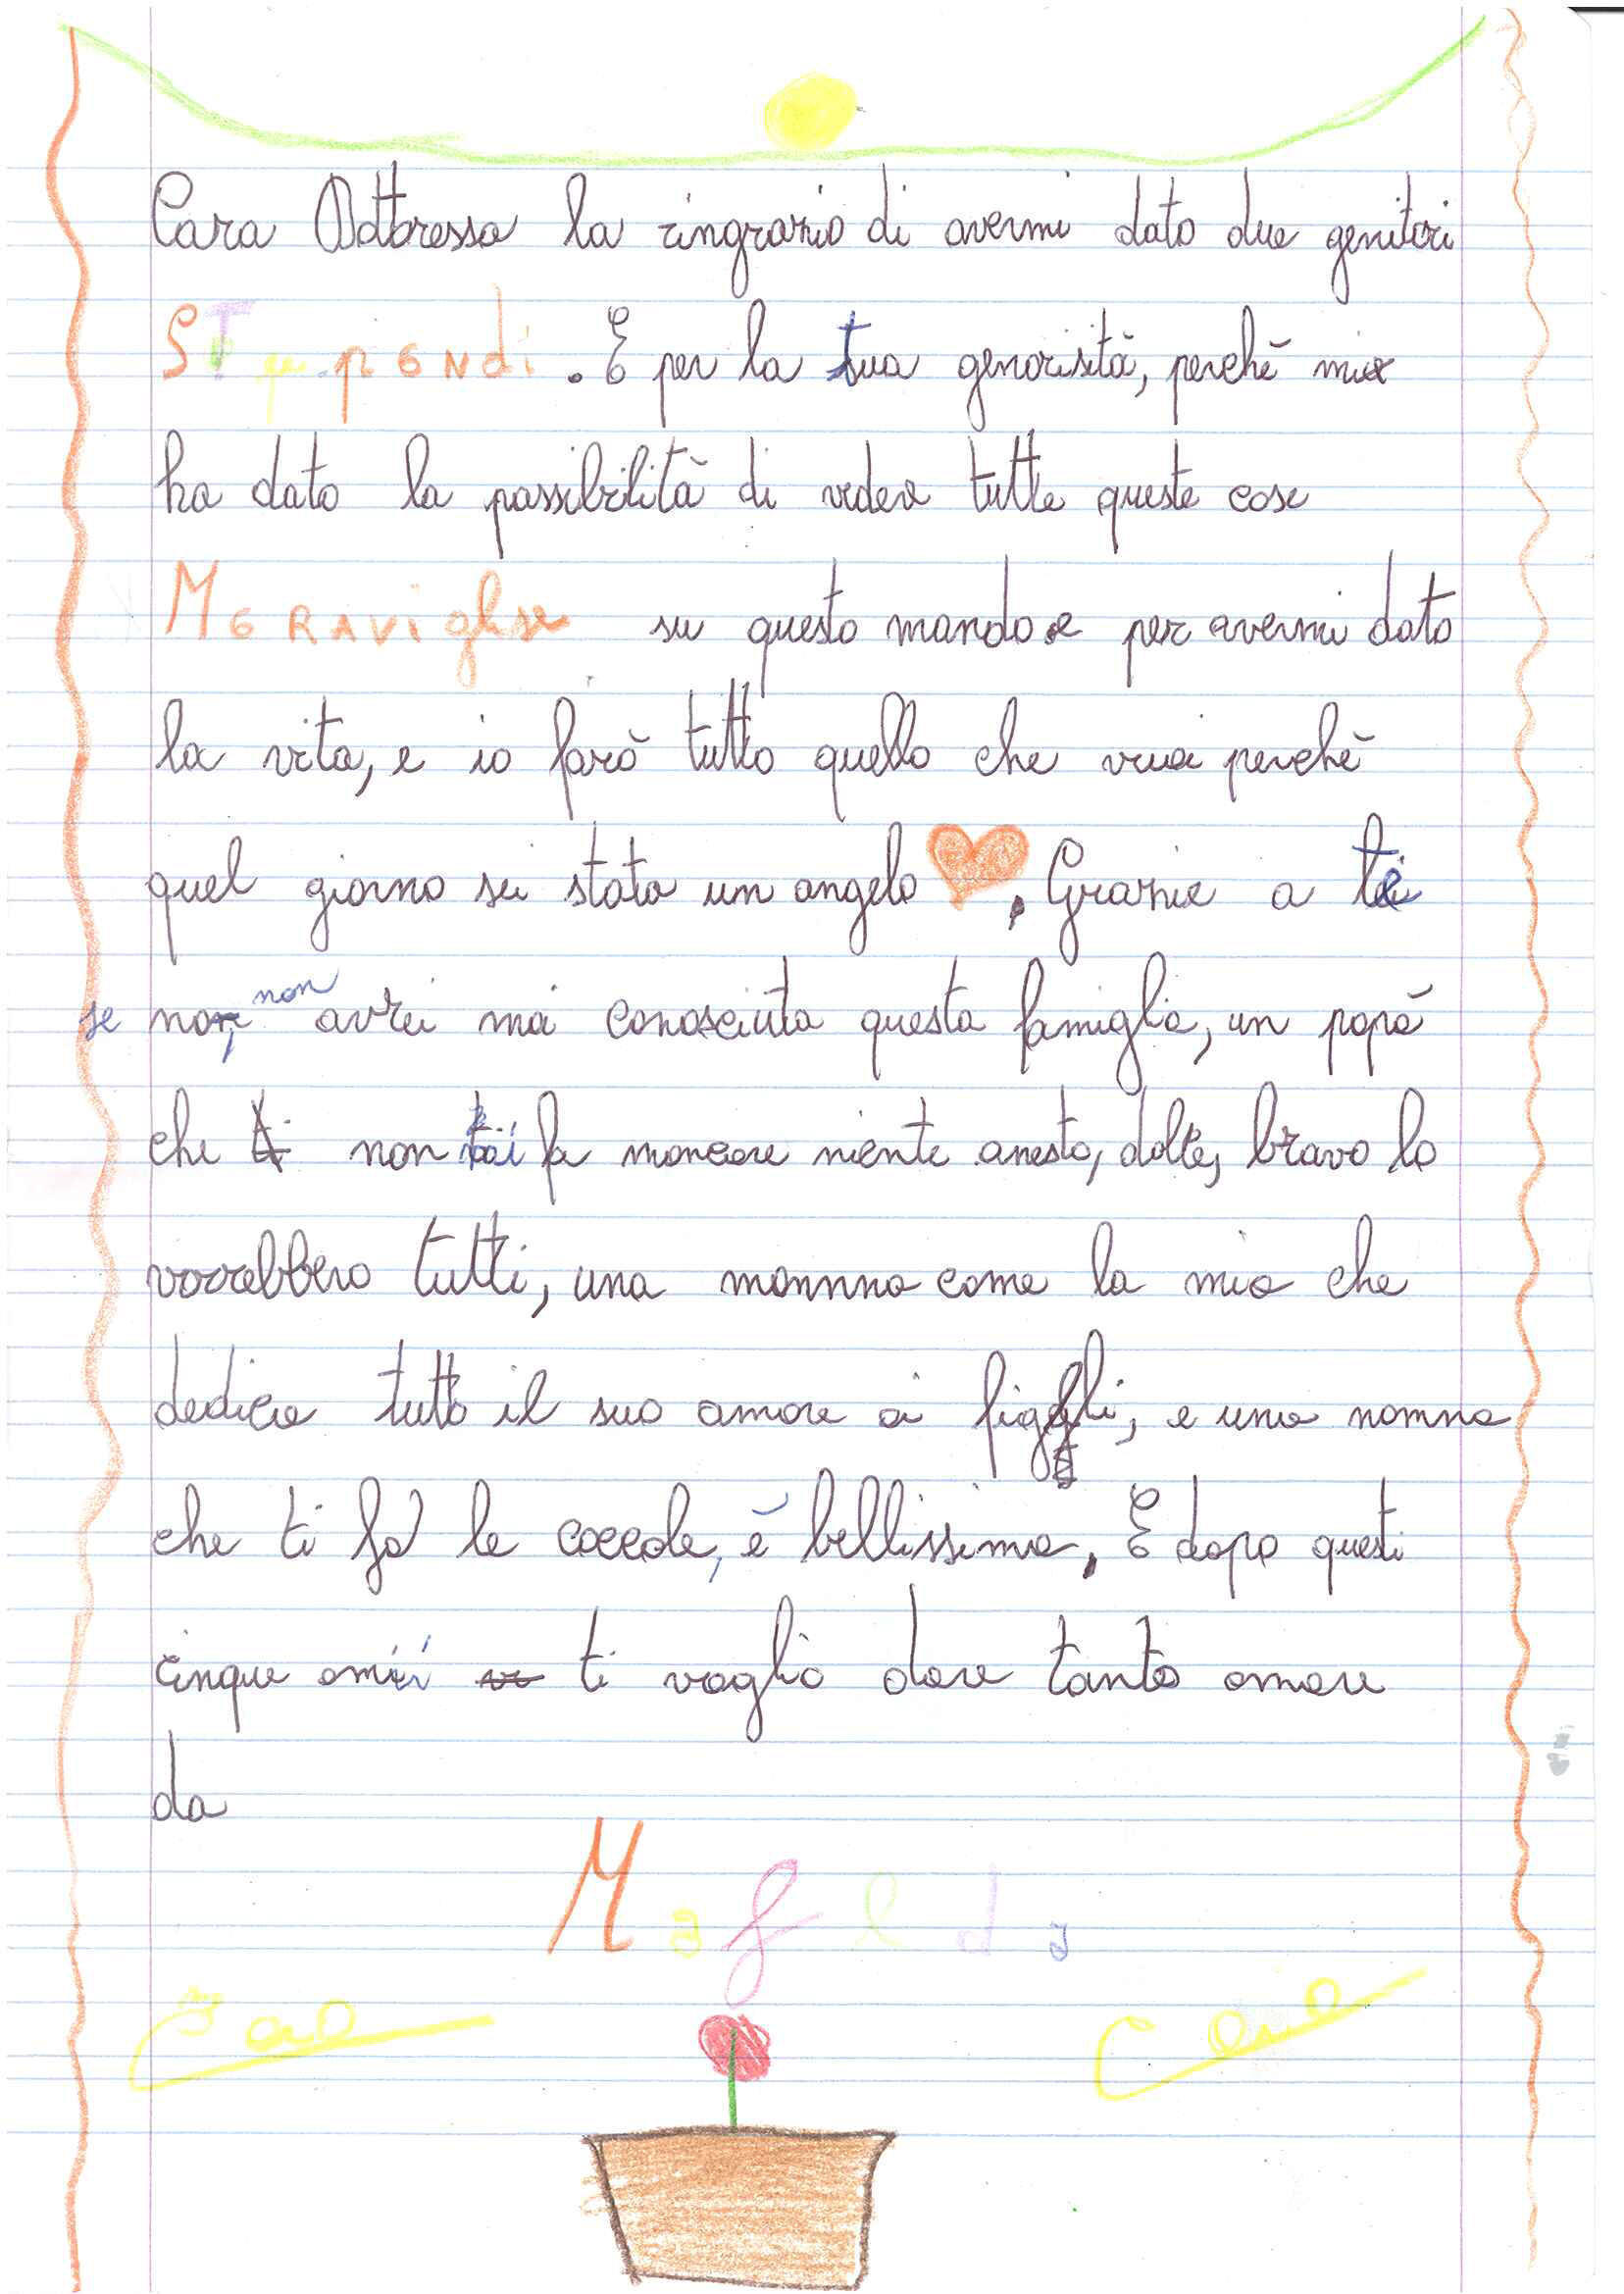 Cara Dottoressa la ringrazio di avermi dato due genitori
STupendi. E per la tua genorisità, perché mi
ha dato la possibilità di vedere tutte queste cose
MeRAVigliose su questo mondo e per avermi dato
la vita, e io farò tutto quello che vuoi perché
quel giorno sei stata un angelo. Grazie a te
se no, non avrei mai conosciuto questa famiglia, un papà
che non mi fa mancare niente onesto, dolce, bravo lo
vorrebbero tutti, una mamma come la mia che
dedica tutto il suo amore ai figli, e una nonna
che ti fà le coccole, è bellissima. E dopo questi
cinque anni ti voglio dare tanto amore
da
Mafalda